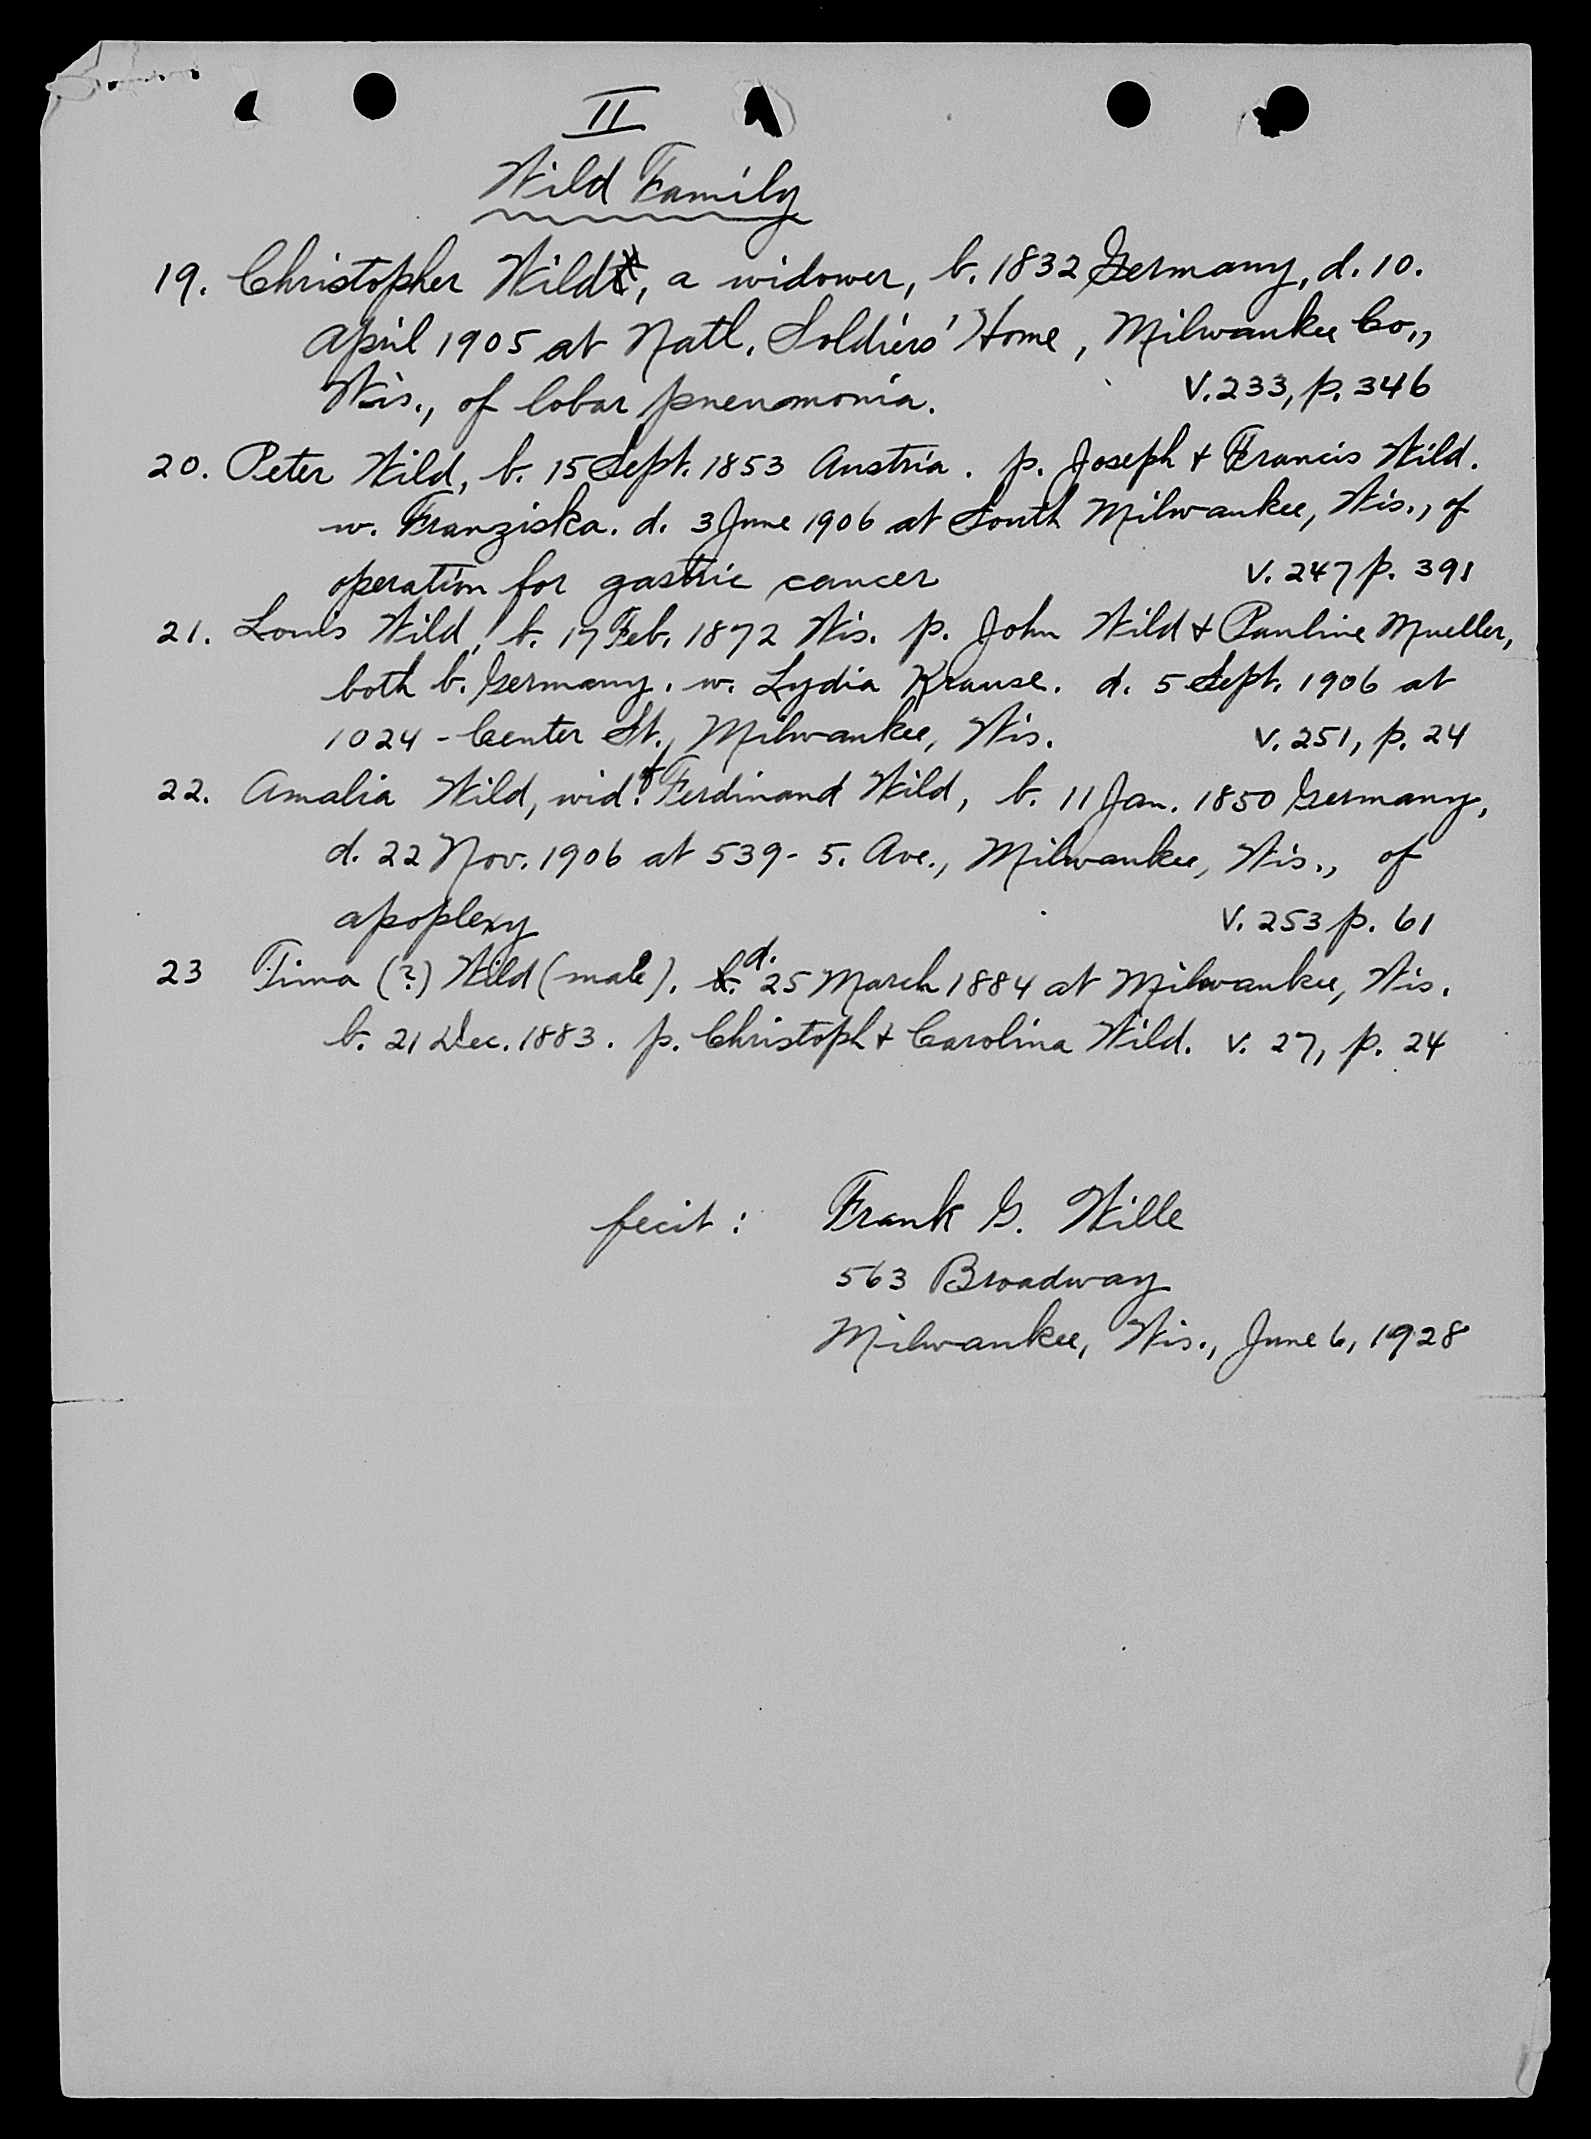 II
Wild Family
19. Christopher Wild, a widower, b. 1832 Germany, d. 10.
April 1905 at Natl. Soldiers' Home, Milwaukee Co.,
Wis., of lobar pneumonia. V. 233, p. 346
20. Peter Wild, b. 15 Sept. 1853 Austria. p. Joseph & Francis Wild.
w. Franziska. d. 3 June 1906 at South Milwaukee, Wis., of
operation for gastric cancer V. 247 p. 391
21. Louis Wild, b. 17 Feb. 1872 Wis. p. John Wild & Pauline Mueller,
both b. Germany. w. Lydia Krause. d. 5 Sept. 1906 at
1024 - Center St., Milwaukee, Wis. V. 251, p. 24
22. Amalia Wild, wid. of Ferdinand Wild, b. 11 Jan. 1850 Germany,
d. 22 Nov. 1906 at 539 - 5. Ave., Milwaukee, Wis., of
apoplexy V. 253 p. 61
23 Tima (?) Wild (male). d. 25 March 1884 at Milwaukee, Wis.
b. 21 Dec. 1883. p. Christoph & Carolina Wild. V. 27, p. 24
fecit: Frank G. Wille
563 Broadway
Milwaukee, Wis., June 6, 1928